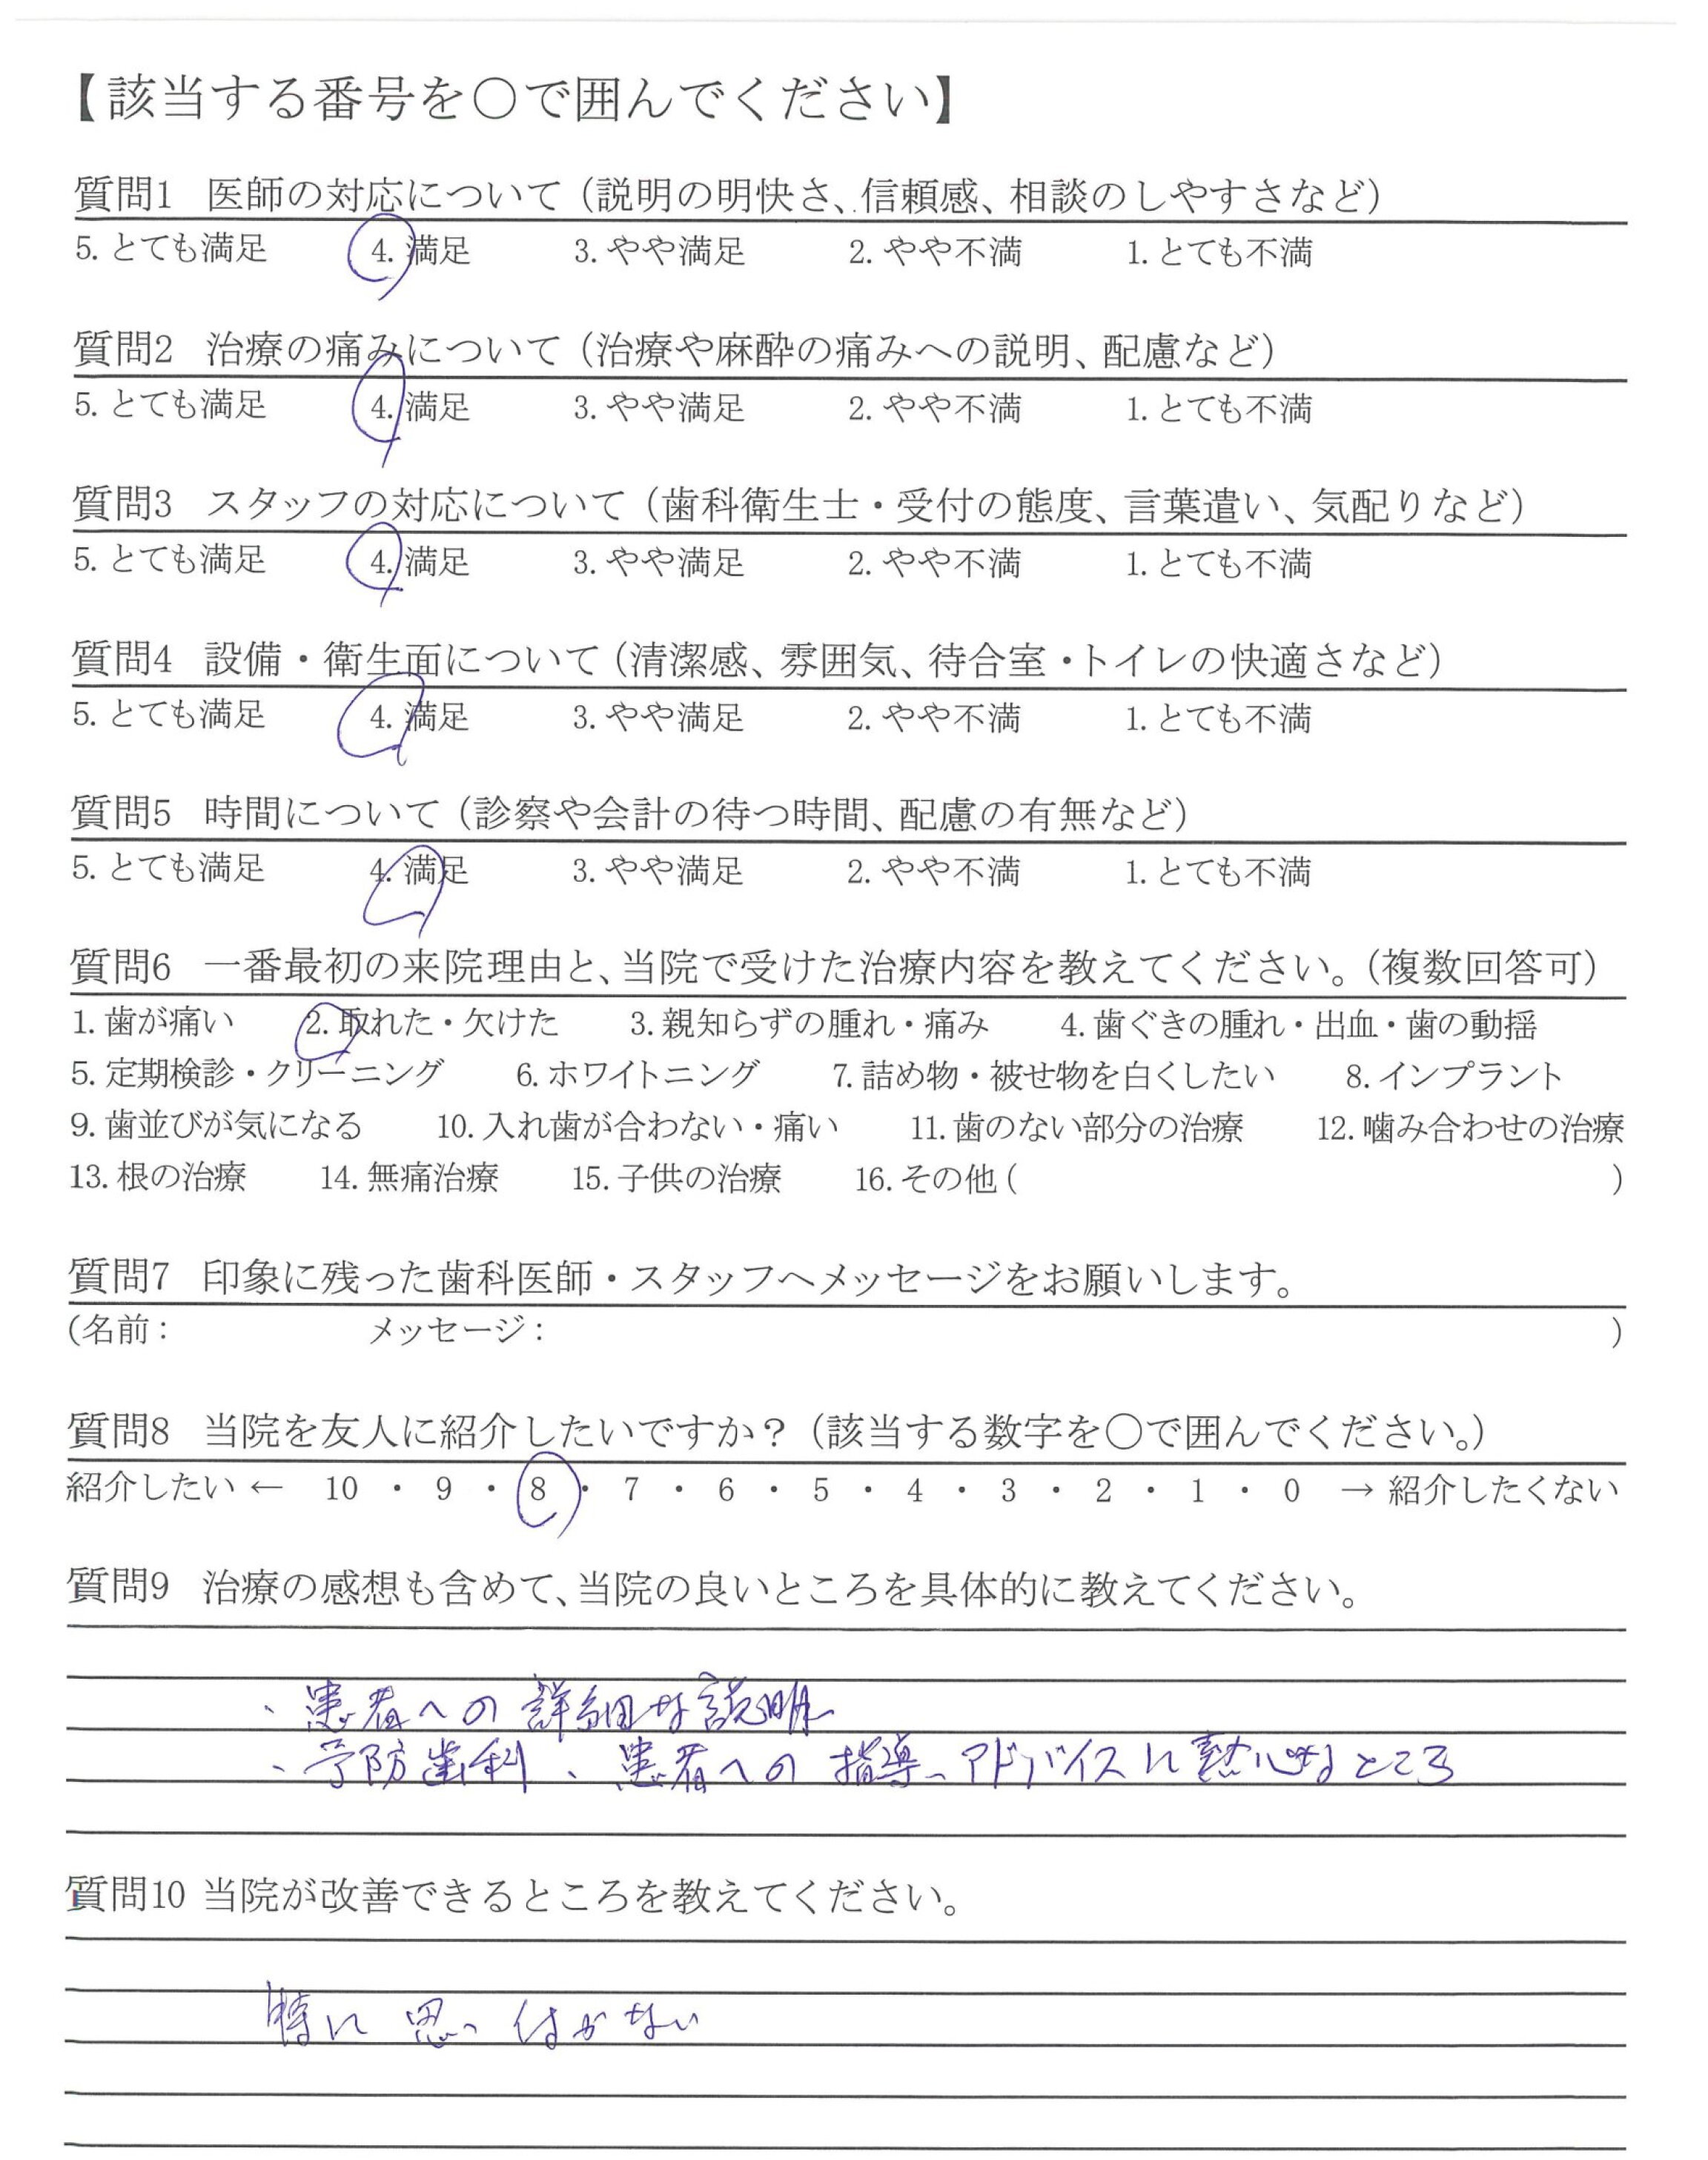 【該当する番号を〇で囲んでください】
質問1 医師の対応について（説明の明快さ、信頼感、相談のしやすさなど）
5. とても満足 4. 満足 3. やや満足 2. やや不満 1. とても不満
質問2 治療の痛みについて（治療や麻酔の痛みへの説明、配慮など）
5. とても満足 4. 満足 3. やや満足 2. やや不満 1. とても不満
質問3 スタッフの対応について（歯科衛生士・受付の態度、言葉遣い、気配りなど）
5. とても満足 4. 満足 3. やや満足 2. やや不満 1. とても不満
質問4 設備・衛生面について（清潔感、雰囲気、待合室・トイレの快適さなど）
5. とても満足 4. 満足 3. やや満足 2. やや不満 1. とても不満
質問5 時間について（診察や会計の待つ時間、配慮の有無など）
5. とても満足 4. 満足 3. やや満足 2. やや不満 1. とても不満
質問6 一番最初の来院理由と、当院で受けた治療内容を教えてください。（複数回答可）
1. 歯が痛い 2. 取れた・欠けた 3. 親知らずの腫れ・痛み 4. 歯ぐきの腫れ・出血・歯の動揺
5. 定期検診・クリーニング 6. ホワイトニング 7. 詰め物・被せ物を白くしたい 8. インプラント
9. 歯並びが気になる 10. 入れ歯が合わない・痛い 11. 歯のない部分の治療 12. 噛み合わせの治療
13. 根の治療 14. 無痛治療 15. 子供の治療 16. その他（ ）
質問7 印象に残った歯科医師・スタッフへメッセージをお願いします。
（名前： メッセージ： ）
質問8 当院を友人に紹介したいですか？（該当する数字を〇で囲んでください。）
紹介したい ← 10 ・ 9 ・ 8 ・ 7 ・ 6 ・ 5 ・ 4 ・ 3 ・ 2 ・ 1 ・ 0 → 紹介したくない
質問9 治療の感想も含めて、当院の良いところを具体的に教えてください。
、患者への詳細な説明
、予防歯科、患者への指導、アドバイスに熱心なところ
質問10 当院が改善できるところを教えてください。
特に思い付かない